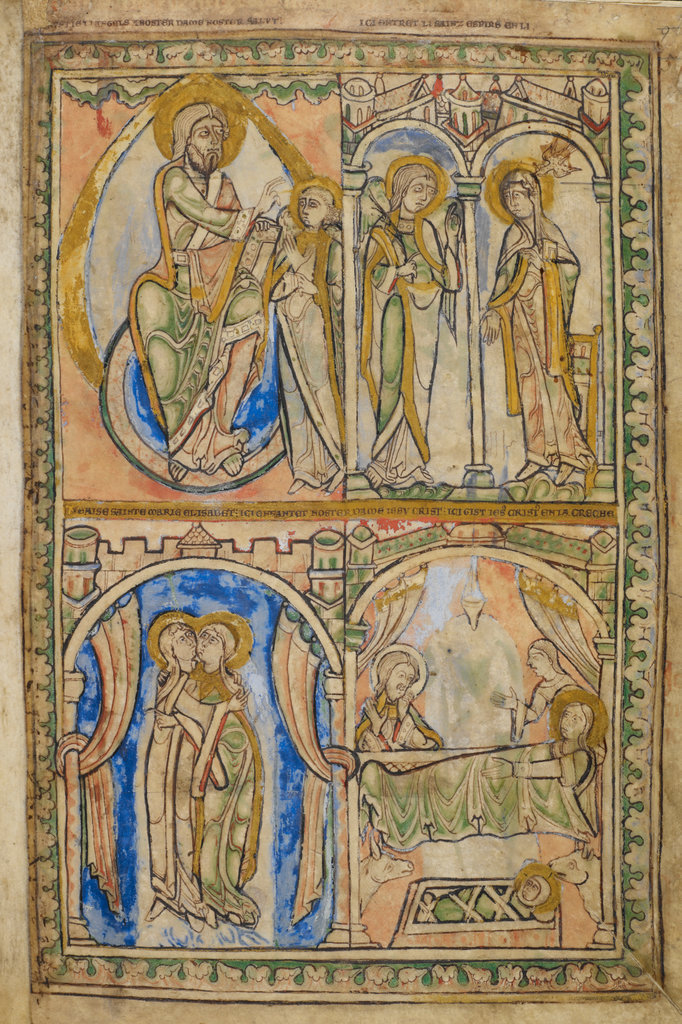 ANGELS NOSTER DAME NOSTER SALVT:
ICI ENTRET LI SAINZ ESPIRS EN LI
BAISE SAINTE MARIE ELISABET: ICI ENFANTET NOSTER DAME IESV CRIST: ICI GIST IES CRIST EN LA CRECHE